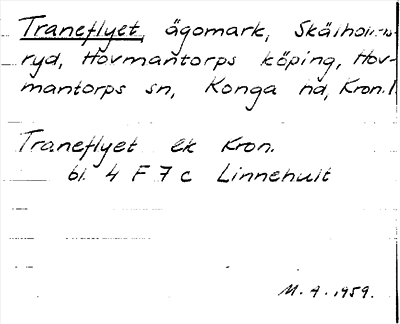 Traneflyet, ägomark,
ryd, Hovmantorps köping, Hov-
mantorps sn, Konga hd, Kron. l.
Traneflyet ek Kron.
bl. 4 F 7 c Linnehult
M. A. 1959.